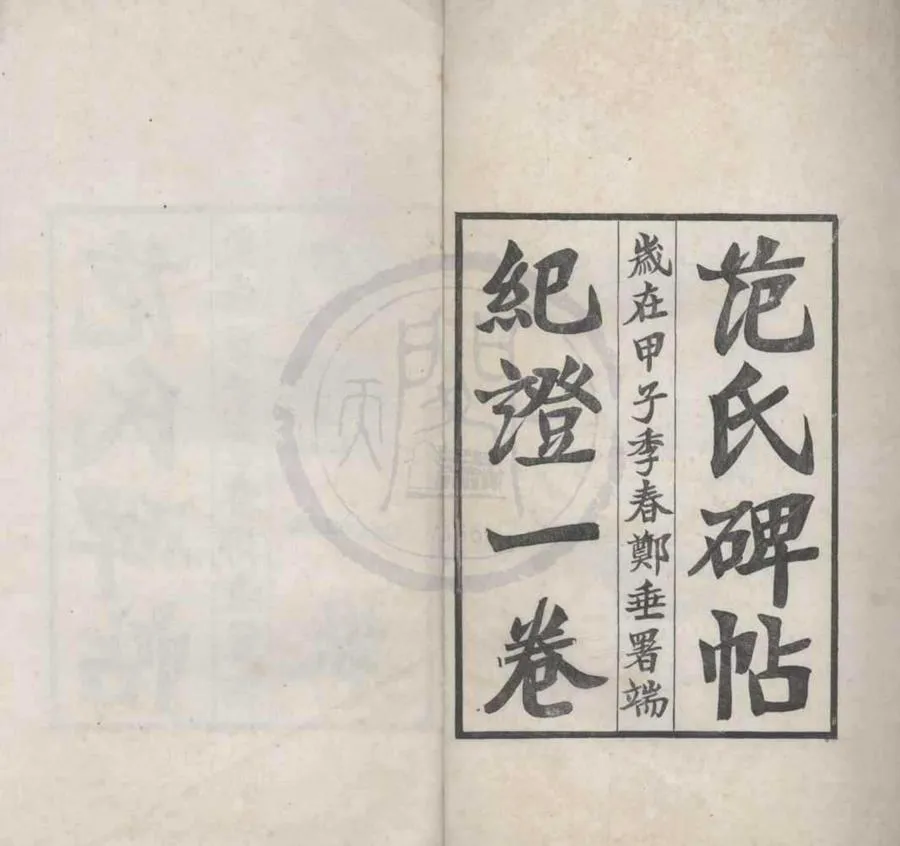 范氏碑帖
歲在甲子季春鄭垂署端
紀證一卷